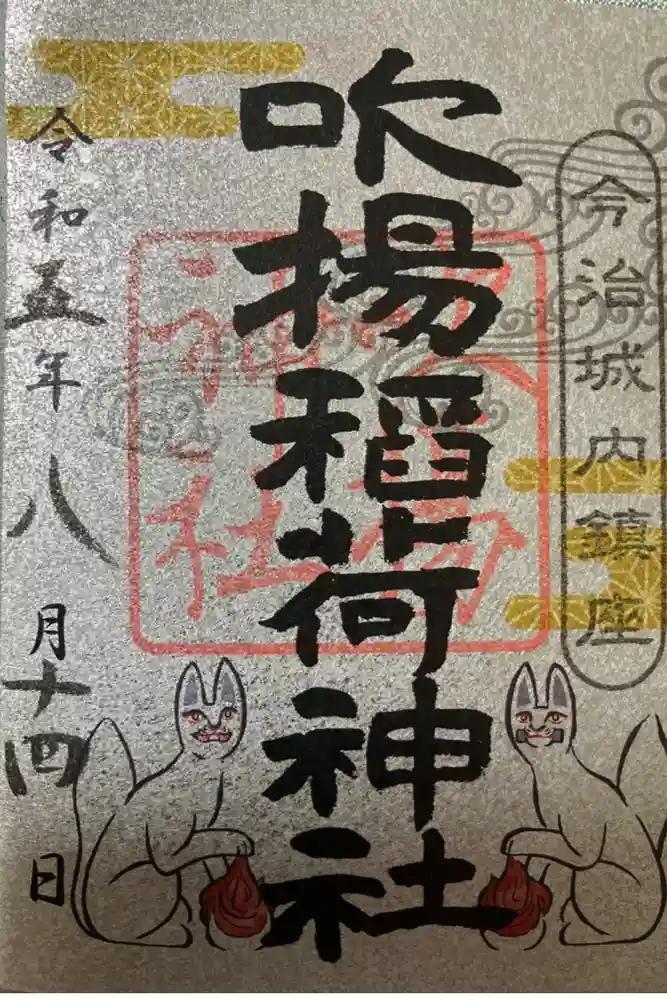 今治城内鎮座
吹揚稲荷神社
令和五年八月十四日